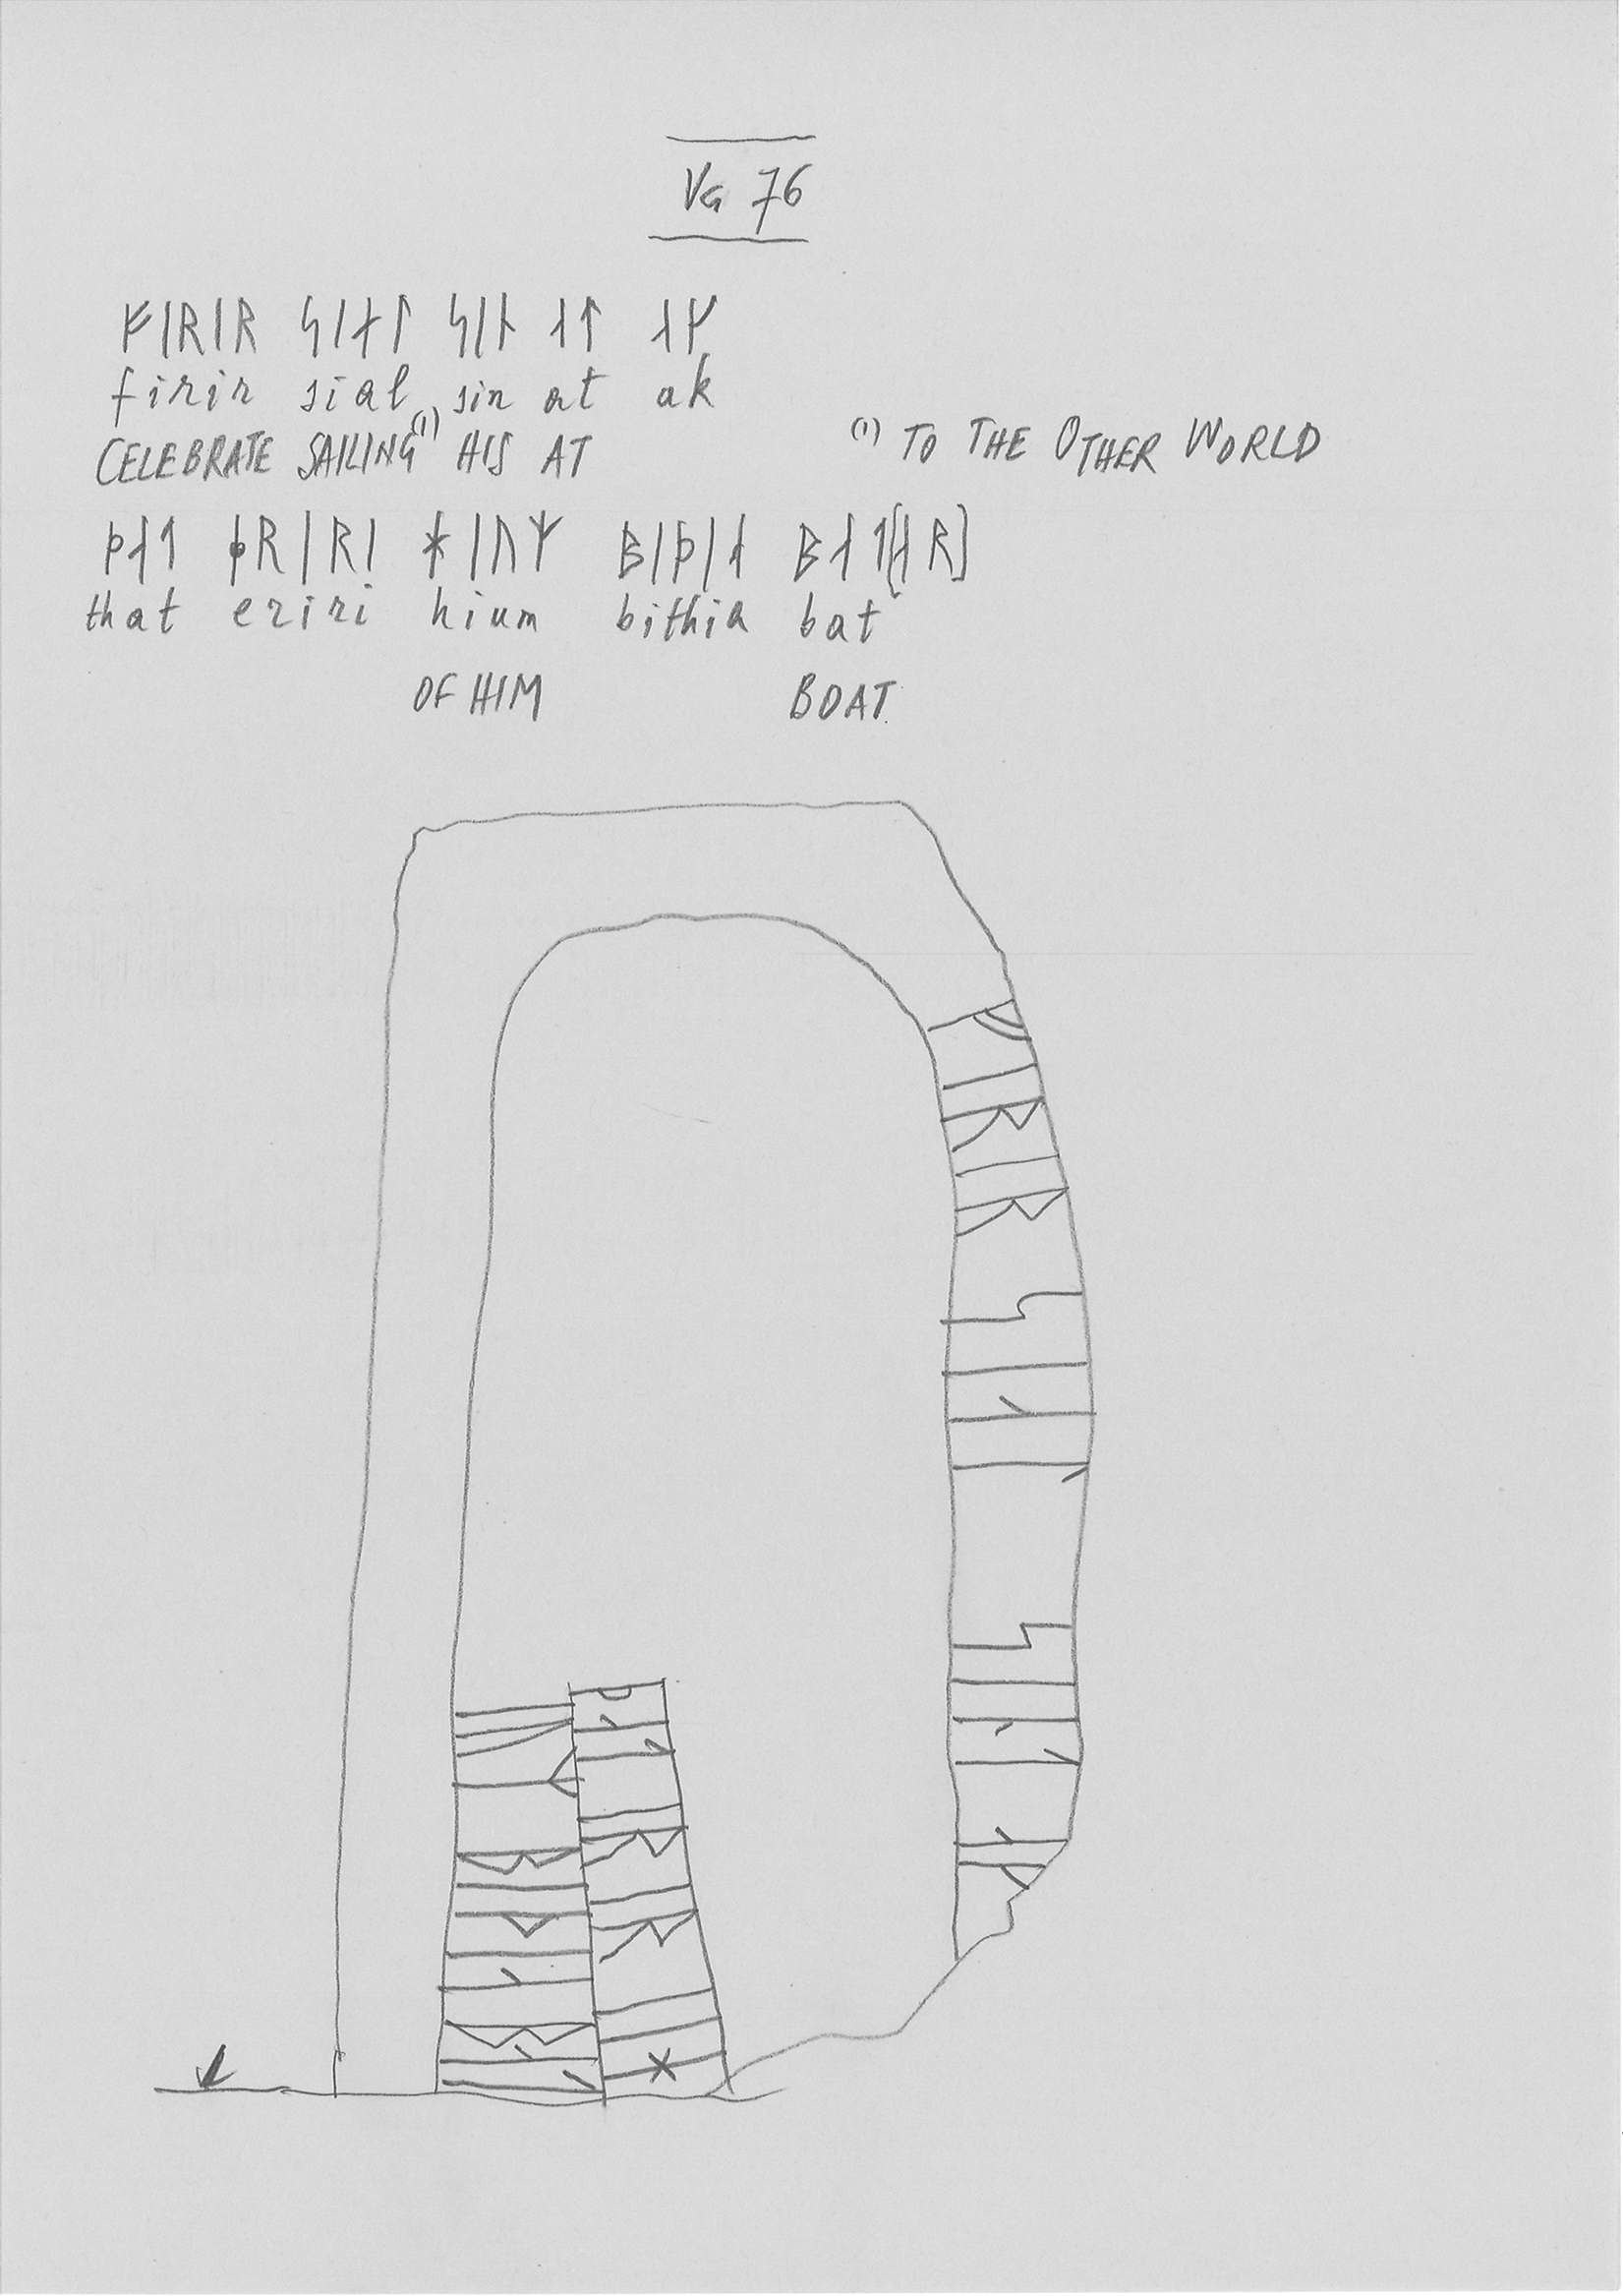 VG 76
ᚠᛁᚱᛁᚱ ᛋᛁᛅᛚ ᛋᛁᚾ ᛅᛏ ᛅᚴ
firir sial⁽¹⁾ sin at ak
CELEBRATE SAILING HIS AT ⁽¹⁾ TO THE OTHER WORLD
ᚦᛅᛏ ᚯᚱᛁᚱᛁ ᚼᛁᚢᛘ ᛒᛁᚦᛁᛅ ᛒᛅᛏ[ᛅᚱ]
that eriri hium bithia bat
OF HIM BOAT